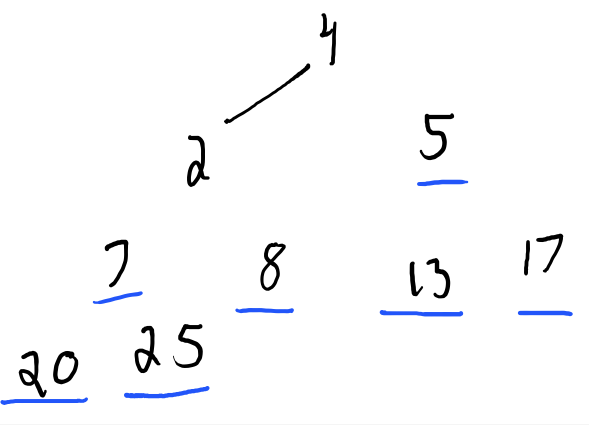 4
2 5
7 8 13 17
20 25